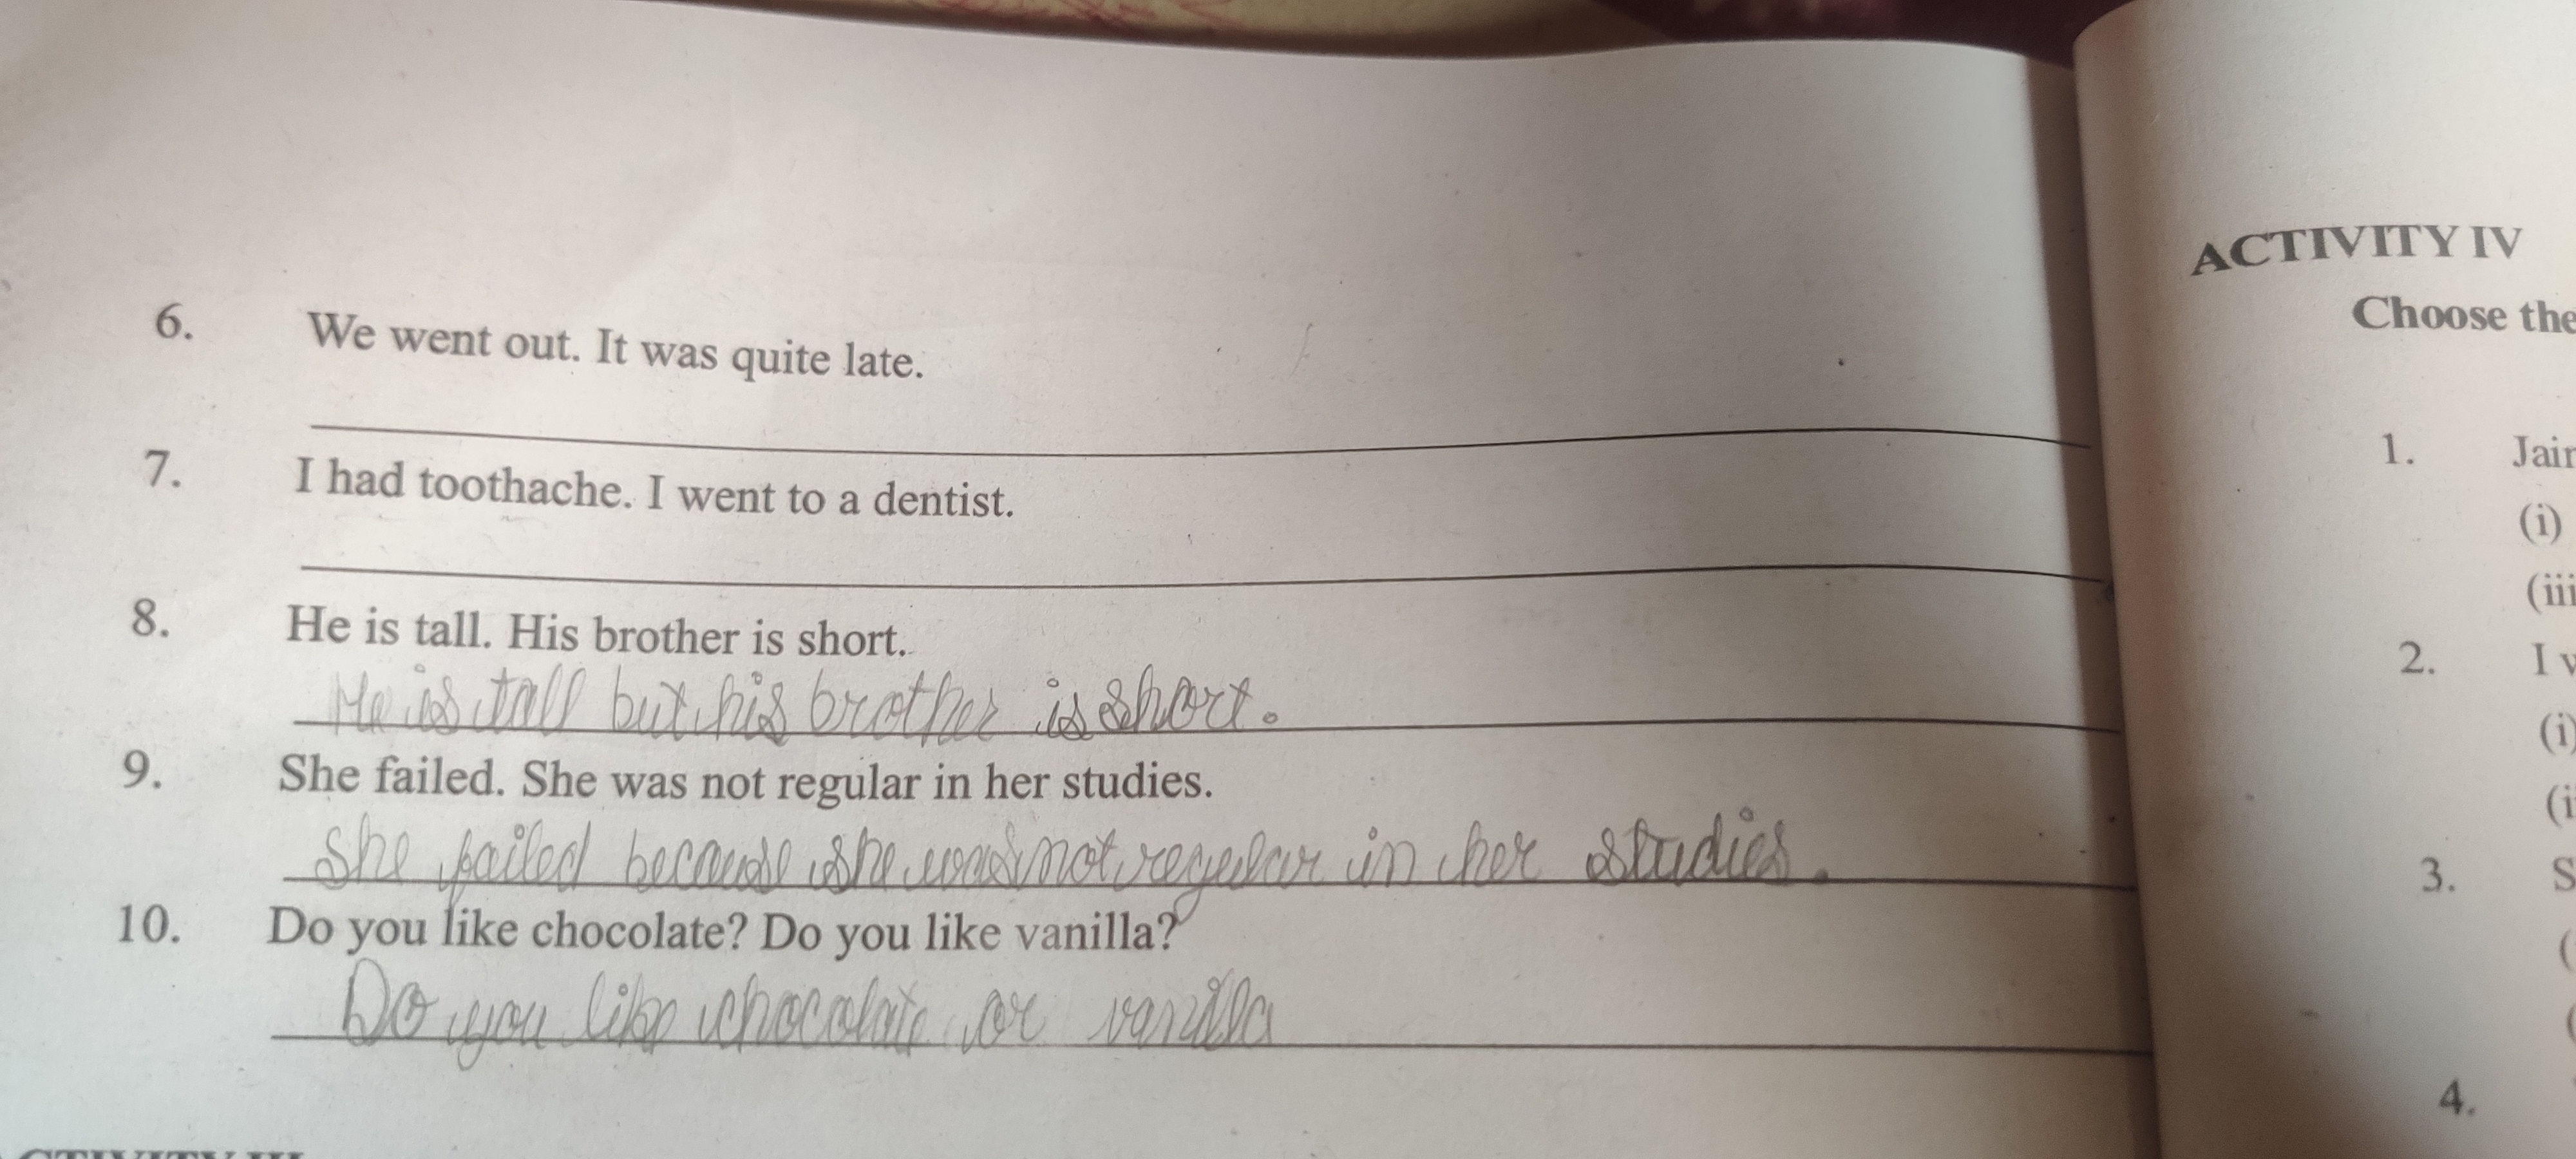 6. We went out. It was quite late.
7. I had toothache. I went to a dentist.
8. He is tall. His brother is short.
He is tall but his brother is short.
9. She failed. She was not regular in her studies.
She failed because she was not regular in her studies.
10. Do you like chocolate? Do you like vanilla?
Do you like chocolate or vanilla
ACTIVITY IV
Choose the
1.
(i)
(iii
2. I
(i)
(i
3. S
(
(
4.